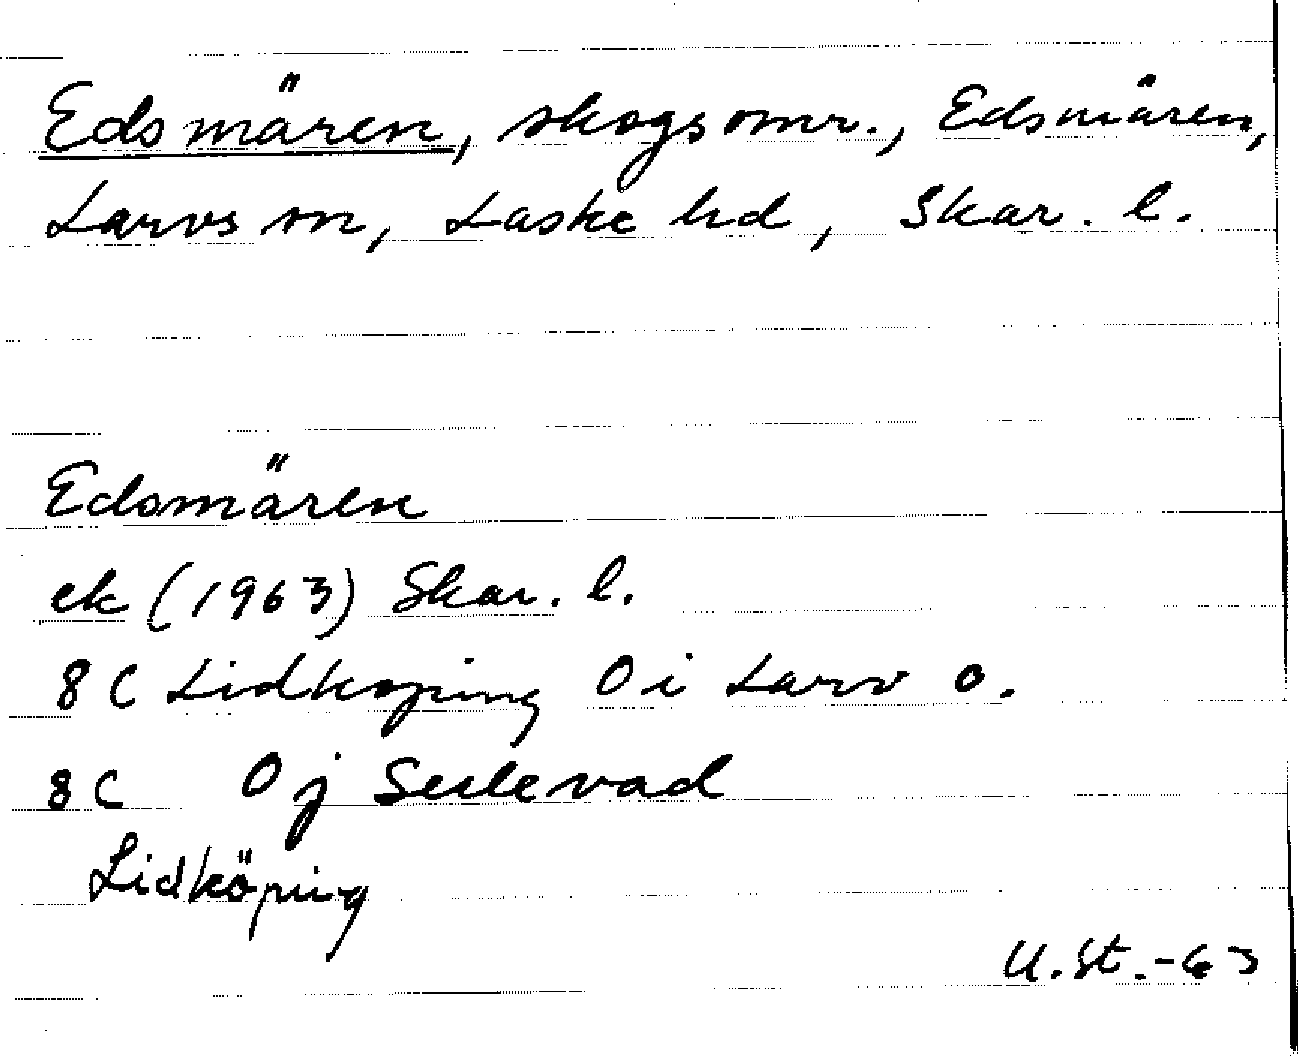 Edsmären, skogsomr., Edsmären,
Larvs sn, Laske hd, Skar. l.
Edsmären
ek (1963) Skar. l.
8 C Lidköping 0 i Larv o.
8 C 0 j Seslevad
Lidköping
U.St.-63